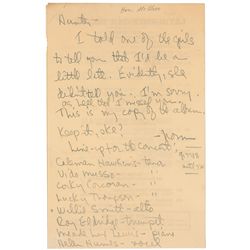 Aunty -
I told one of the girls
to tell you that I'd be a
little late. Evidently, she
didn't tell you. I'm sorry.
as hell that I missed you.
This is my copy of the album.
Keep it, oke?
- Norm
Line-up for the concert:
Coleman Hawkins - tenor
Vido Musso - "
Corky Corcoran - "
Lucky Thompson - "
Willie Smith - alto
Roy Eldridge - trumpet
Meade Lux Lewis - piano
Helen Humes - vocal